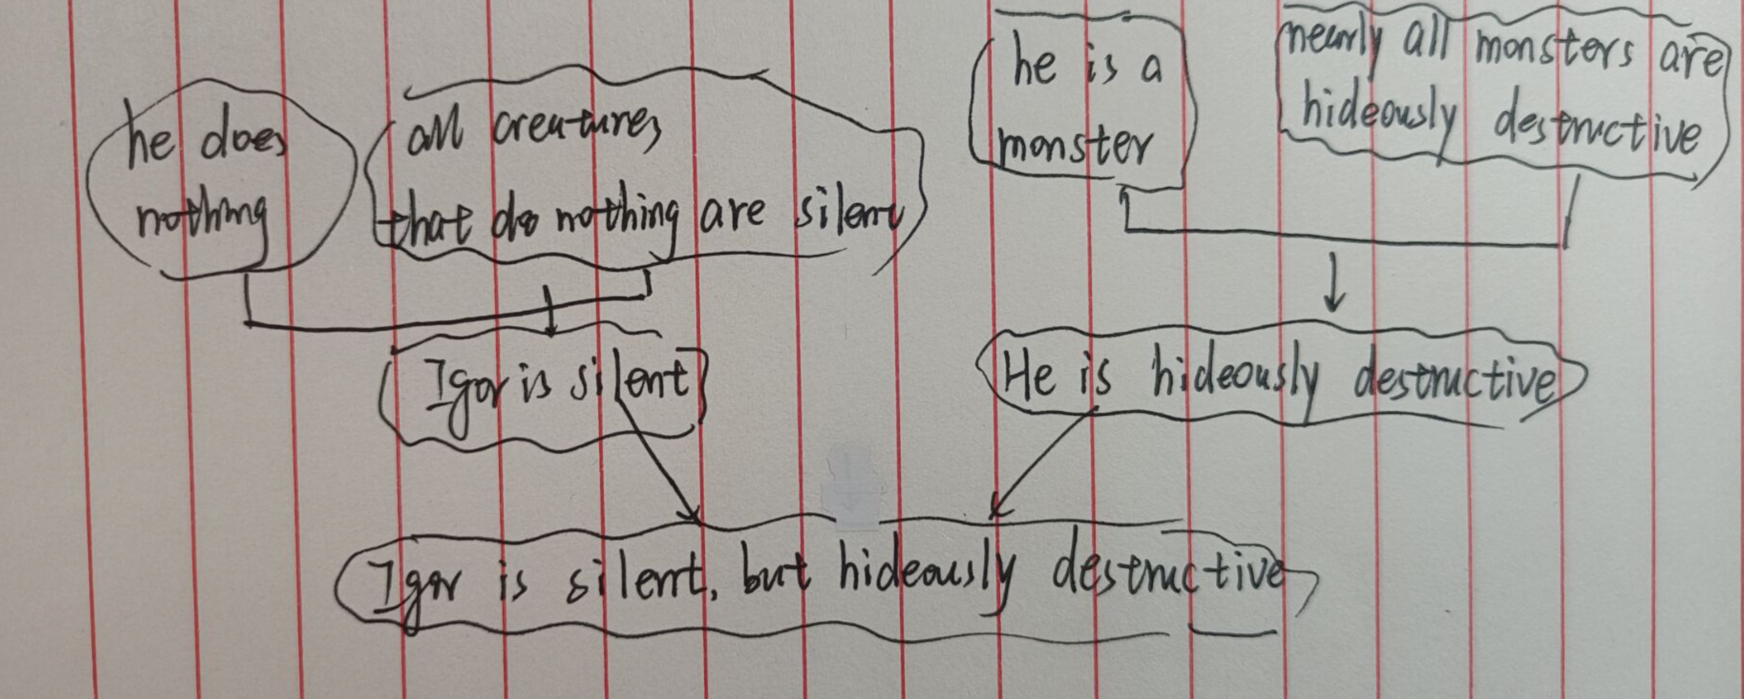 he does
nothing
all creatures
that do nothing are silent
he is a
monster
nearly all monsters are
hideously destructive
Igor is silent
He is hideously destructive
Igor is silent, but hideously destructive